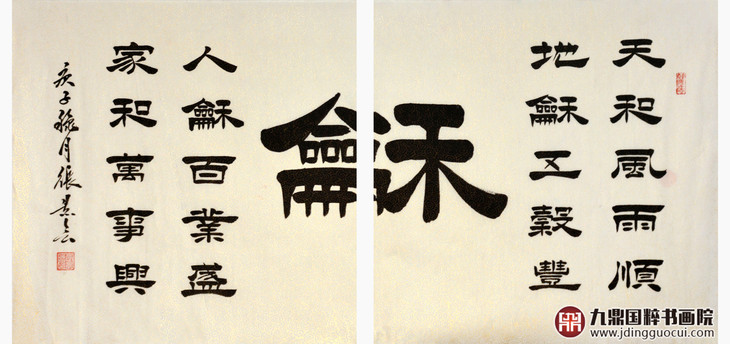 天和風雨順
地龢五穀豐
龢
人龢百業盛
家和萬事興
庚子月張景
九鼎国粹书画院
www.jdingguocui.com